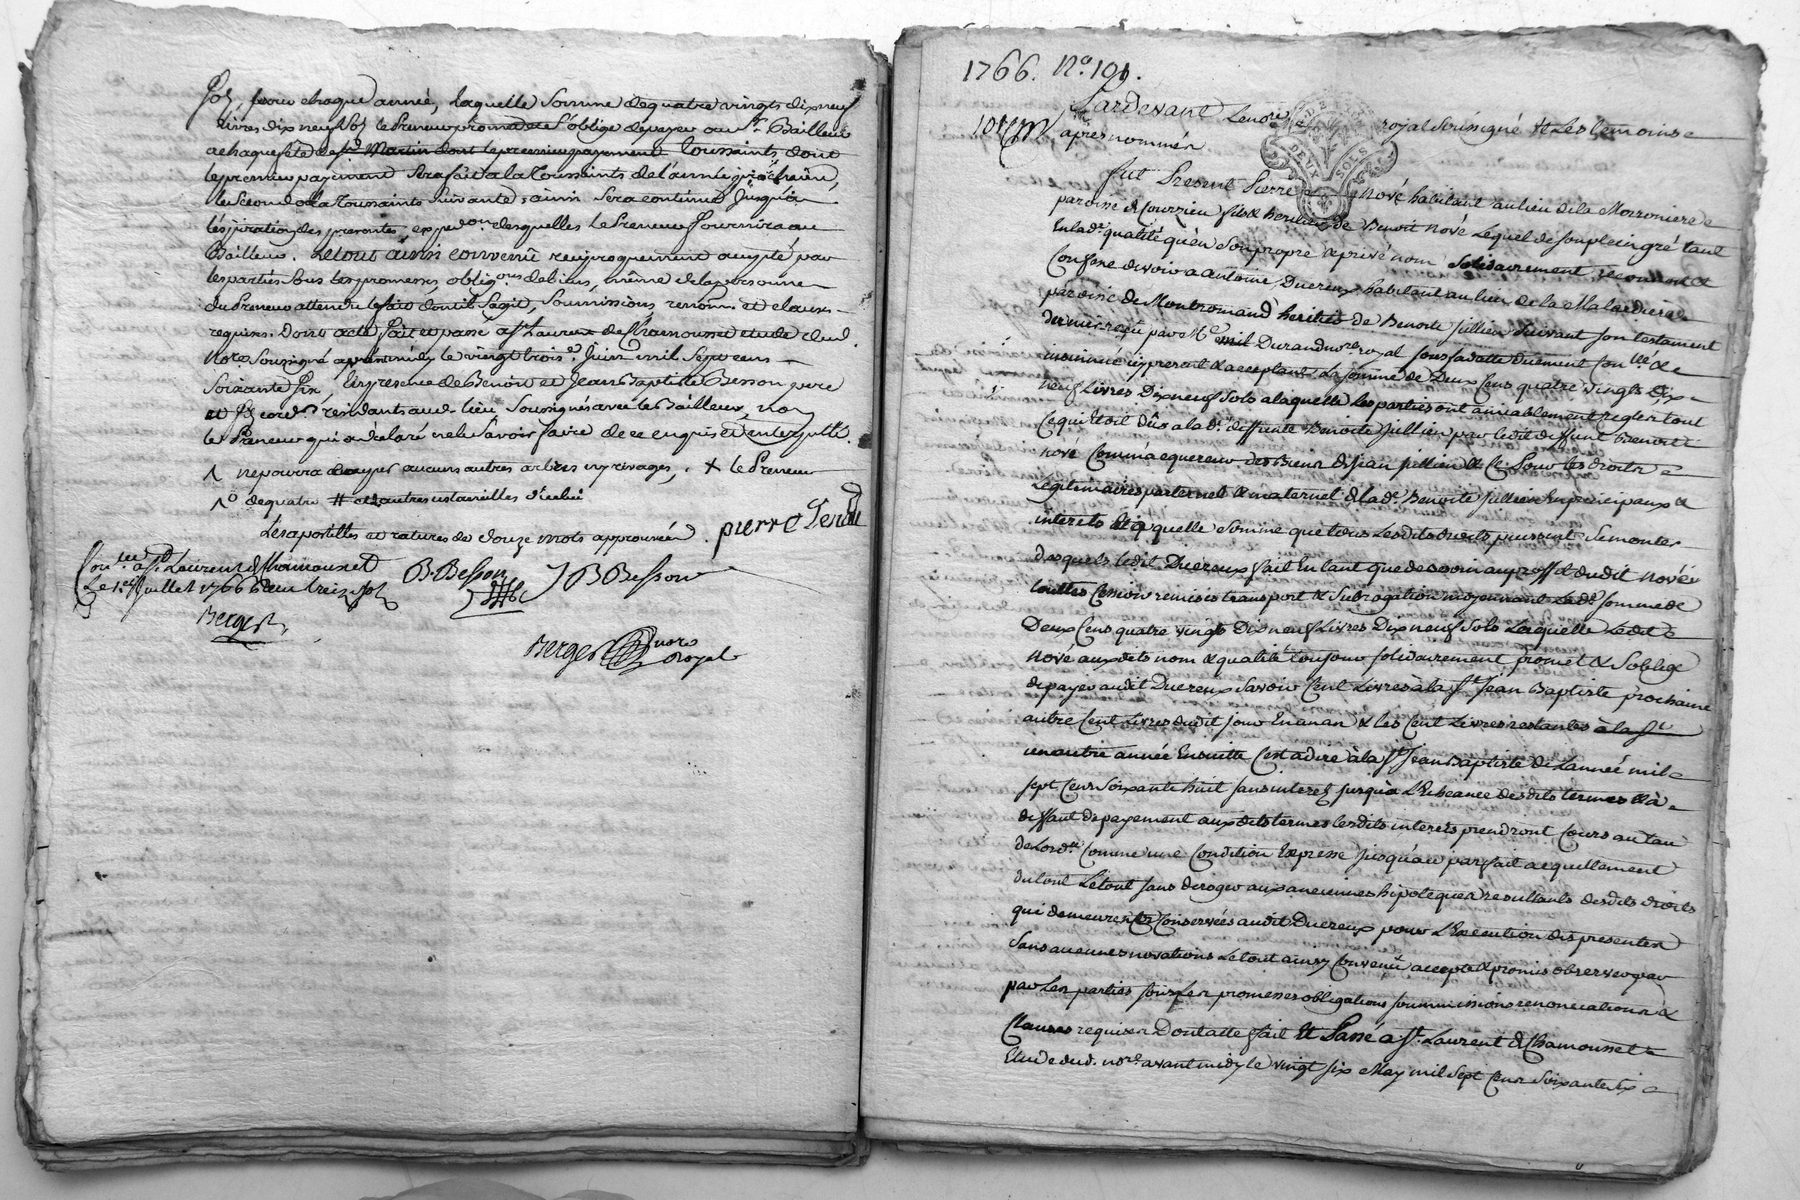 sols, pour chaque année, laquelle somme de quatre vingts dix neuf
livres dix neuf sols le Preneur promet et s'oblige de payer au sr. Bailleur
a chaque fête de st Martin dont le premier payement Toussaints dont
le premier payement sera fait a la Toussaints de l'année prochaine,
le second a la Toussaints suivante, ainsi sera continué jusqu'a
l'éxpiration des presentes, expedon. desquelles le Preneur fournira au
Bailleur. Le tout ainsi convenû reciproquement accepté par
les parties sous les promesses, obligons de biens, même de la personne
du Preneur attendu le fait dont il s'agit, soumissions, renonns. et clauses
requises. Dont acte fait et passé a st Laurent de Chamousset etude dud.
Notre. soussigné avant midy le vingt trois Juin mil sept cens
soixante six, en presence de Benoit et Jean Baptiste Besson pere
et fils residants aud. lieu, soussignés avec le Bailleur, non
le Preneur qui a déclaré ne le savoir faire de ce enquis et interpellé.
ne pourra couper aucuns autres arbres ny rivages, + le Preneur
de quatre # et autres ustancilles
Les apostilles et ratures de douze mots approuvées. pierre
Conlé. a st Laurent de Chamousset B. Besson J B Besson
Le 1er Juillet 1766 Reçu treize sols
Berger
Berger notre
royal
1766. No. 101.
Pardevant Le notre royal soussigné et Les temoins
apres nommés
fut Present Pierre Nové habitant au lieu de la Morroniere
paroisse de Courzieu fils & heritier de Benoit Nové Lequel de son plein gré tant
en lad. qualité qu'en son propre & privé nom solidairement reconnoit &
confesse devoir a Antoine Ducreux habitant au lieu de la Maladiere
paroisse de Montromand heritier de Benoite Jullien suivant son testament
dernier reçu par Me Durand nore. royal sous sa datte duement conllé. &
insinué icy present & acceptant La somme de Deux Cens quatre vingts Dix
neuf Livres Dix neuf sols a laquelle Les parties ont amiablement regler tout
ce qui étoit dûs a lad. deffunte Benoite Jullien par ledit deffunt Benoit
Nové comme acquereur des Biens de Jean Jullien & ce pour les droits
Legitimaires paternel & maternel de lad. Benoite Jullien en principaux &
interets quelle somme que tous Lesdits droits puissent se monter
desquels ledit Ducreux fait en tant que de besoin au proffit dudit Nové
touttes cession remises transport & subrogation moyennant lade. somme de
Deux Cens quatre vingts Dix neuf Livres Dix neuf sols Laquelle Ledit
Nové auxdits nom & qualité toujour solidairement promet & s'oblige
de payer audit Ducreux savoir Cent Livres à la st. Jean Baptiste prochaine
autre Cent Livres dudit jour en un an & les Cent Livres restantes à la st
un autre année Ensuitte C'est a dire à la st. Jean Baptiste de L'année mil
sept Cens soixante huit sans interet jusqu'à L'Echeance desdits termes & à
deffaut de payement auxdits termes lesdits interets prendront Cours au tau
de L'ordce. Comme une Condition Expresse jusqu'au parfait acquittement
du tout Le tout sans deroger aux anciennes hipoteques resultants desdits droits
qui demeurent Conservées audit Ducreux pour L'Execution des presentes
sans aucunes novations Le tout ainsy Convenû accepté & promis observer par
par Les parties sous Les promesses obligations soummissions renonciations &
Clauses requises Dont acte fait Et Passé a st. Laurent de Chamousset
Etude dud. nore. avant midy le vingt six May mil sept Cens soixante six